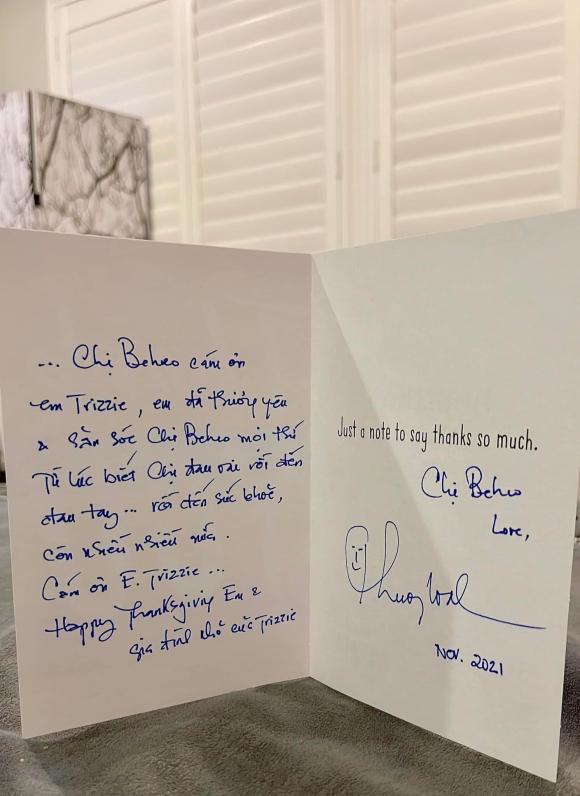 ... Chị Beheo cám ơn
em Trizzie, em đã thương yêu
& săn sóc Chị Beheo mọi thứ
Từ lúc biết Chị đau vai rồi đến
đau tay... rồi đến sức khoẻ,
còn nhiều nhiều nữa.
Cám ơn E. Trizzie...
Happy Thanksgiving Em &
gia đình nhỏ của Trizzie
Just a note to say thanks so much.
Chị Beheo
Love,
Nov. 2021